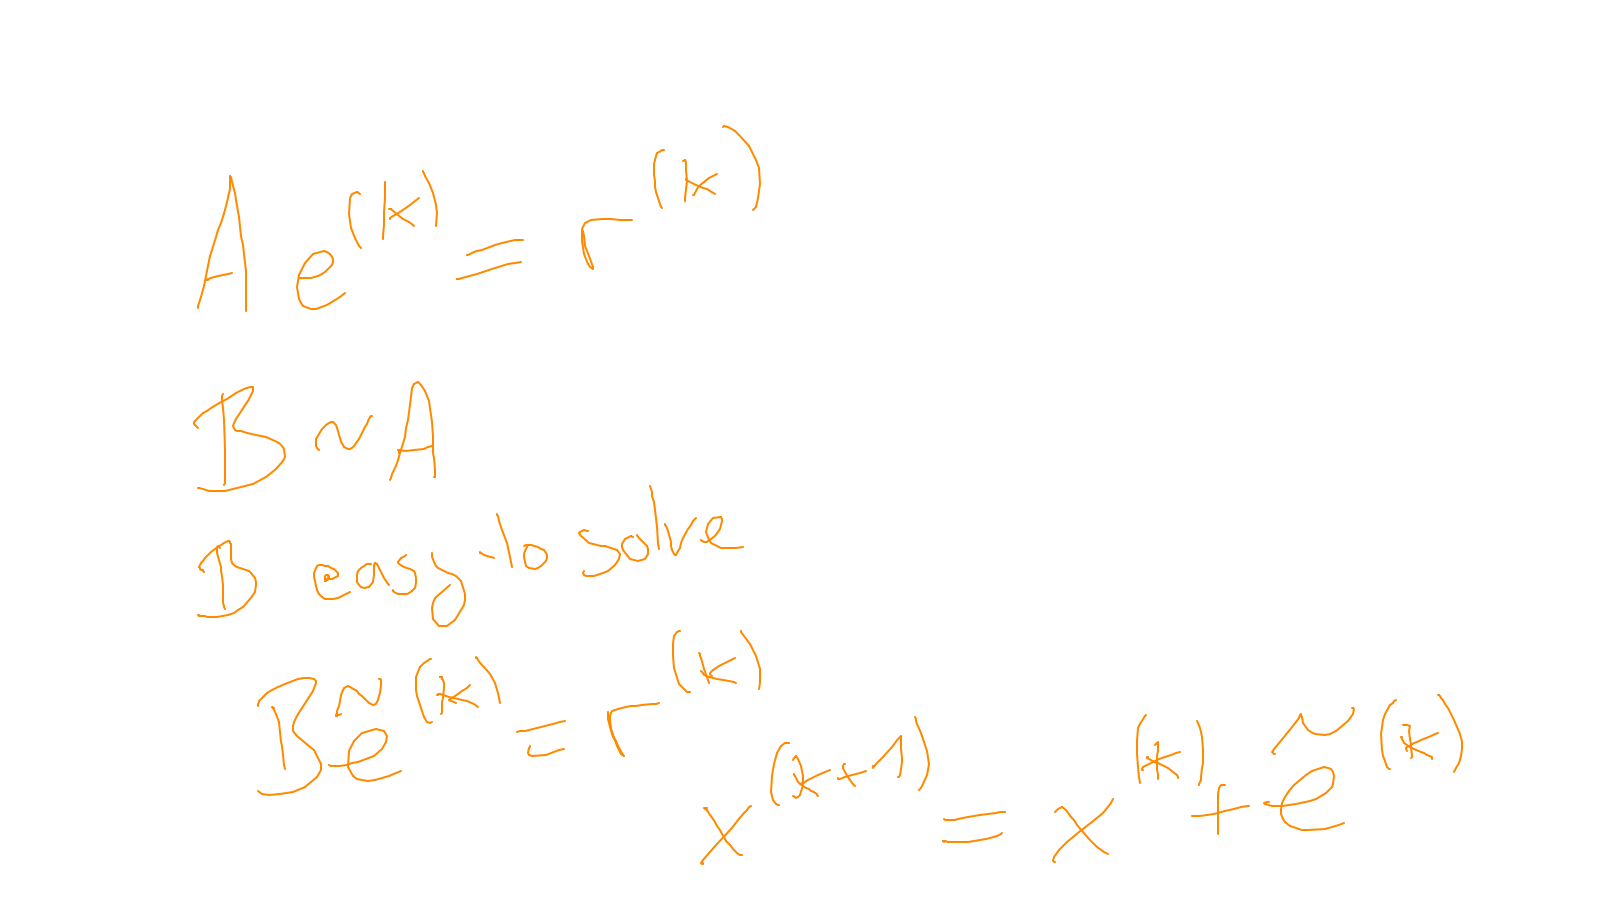 A e^(k) = r^(k)
B ~ A
B easy to solve
B ẽ^(k) = r^(k)
x^(k+1) = x^(k) + ẽ^(k)